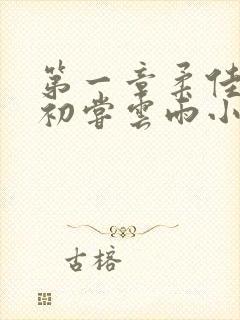 第一章柔佳
初尝雲雨小
古榕